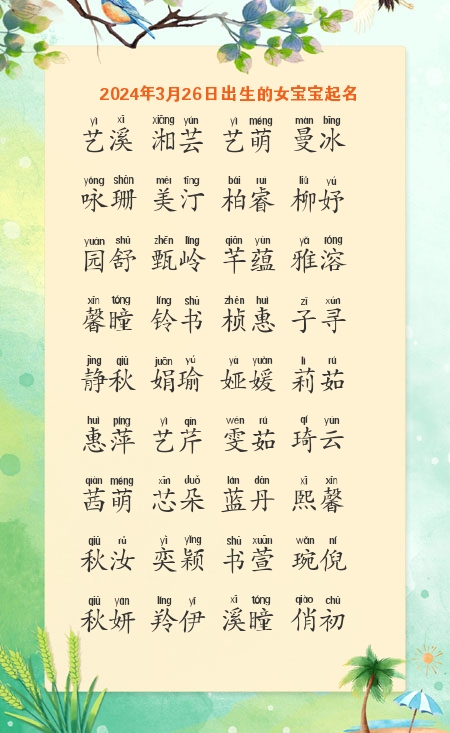 2024年3月26日出生的女宝宝起名
yì xī xiāng yún yì méng màn bīng
艺溪 湘芸 艺萌 曼冰
yǒng shān měi tīng bǎi ruì liǔ yú
咏珊 美汀 柏睿 柳妤
yuán shū zhēn lǐng qiān yùn yǎ róng
园舒 甄岭 芊蕴 雅溶
xīn tóng líng shū zhēn huì zǐ xún
馨瞳 铃书 桢惠 子寻
jìng qiū juān yú yà yuàn lì rú
静秋 娟瑜 娅媛 莉茹
huì píng yì qín wén rú qí yún
惠萍 艺芹 雯茹 琦云
qiàn méng xīn duǒ lán dān xī xīn
茜萌 芯朵 蓝丹 熙馨
qiū rǔ yì yǐng shū xuān wǎn ní
秋汝 奕颖 书萱 琬倪
qiū yán líng yī xī tóng qiào chū
秋妍 羚伊 溪瞳 俏初